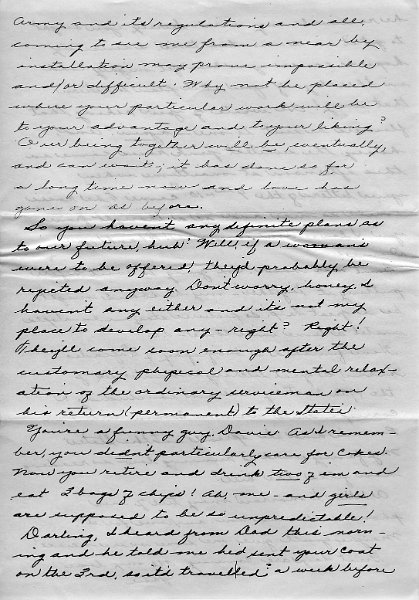 Army and its regulations and all,
coming to see me from a near by
installation may prove impossible
and/or difficult. Why not be placed
where your particular work will be
to your advantage and to your liking?
Our being together will be, eventually,
and can wait; it has done so for
a long time now and love has
gone on as before.
So you haven't any definite plans as
to our future, huh? Well, if a woman's
were to be offered, they'd probably be
rejected anyway. Don't worry, honey, I
haven't any either and it's not my
place to develop any - right? Right!
They'll come soon enough after the
customary physical and mental relax-
ation of the ordinary serviceman on
his return (permanent) to the States.
You're a funny guy, Davie. As I remem-
ber, you didn't particularly care for Cokes.
Now you retire and drink two of em and
eat 2 bags of chips! Ah, me - and girls
are supposed to be so unpredictable!
Darling, I heard from Dad this morn-
ing and he told me he'd sent your coat
on the 3rd, so it's travelled a week before